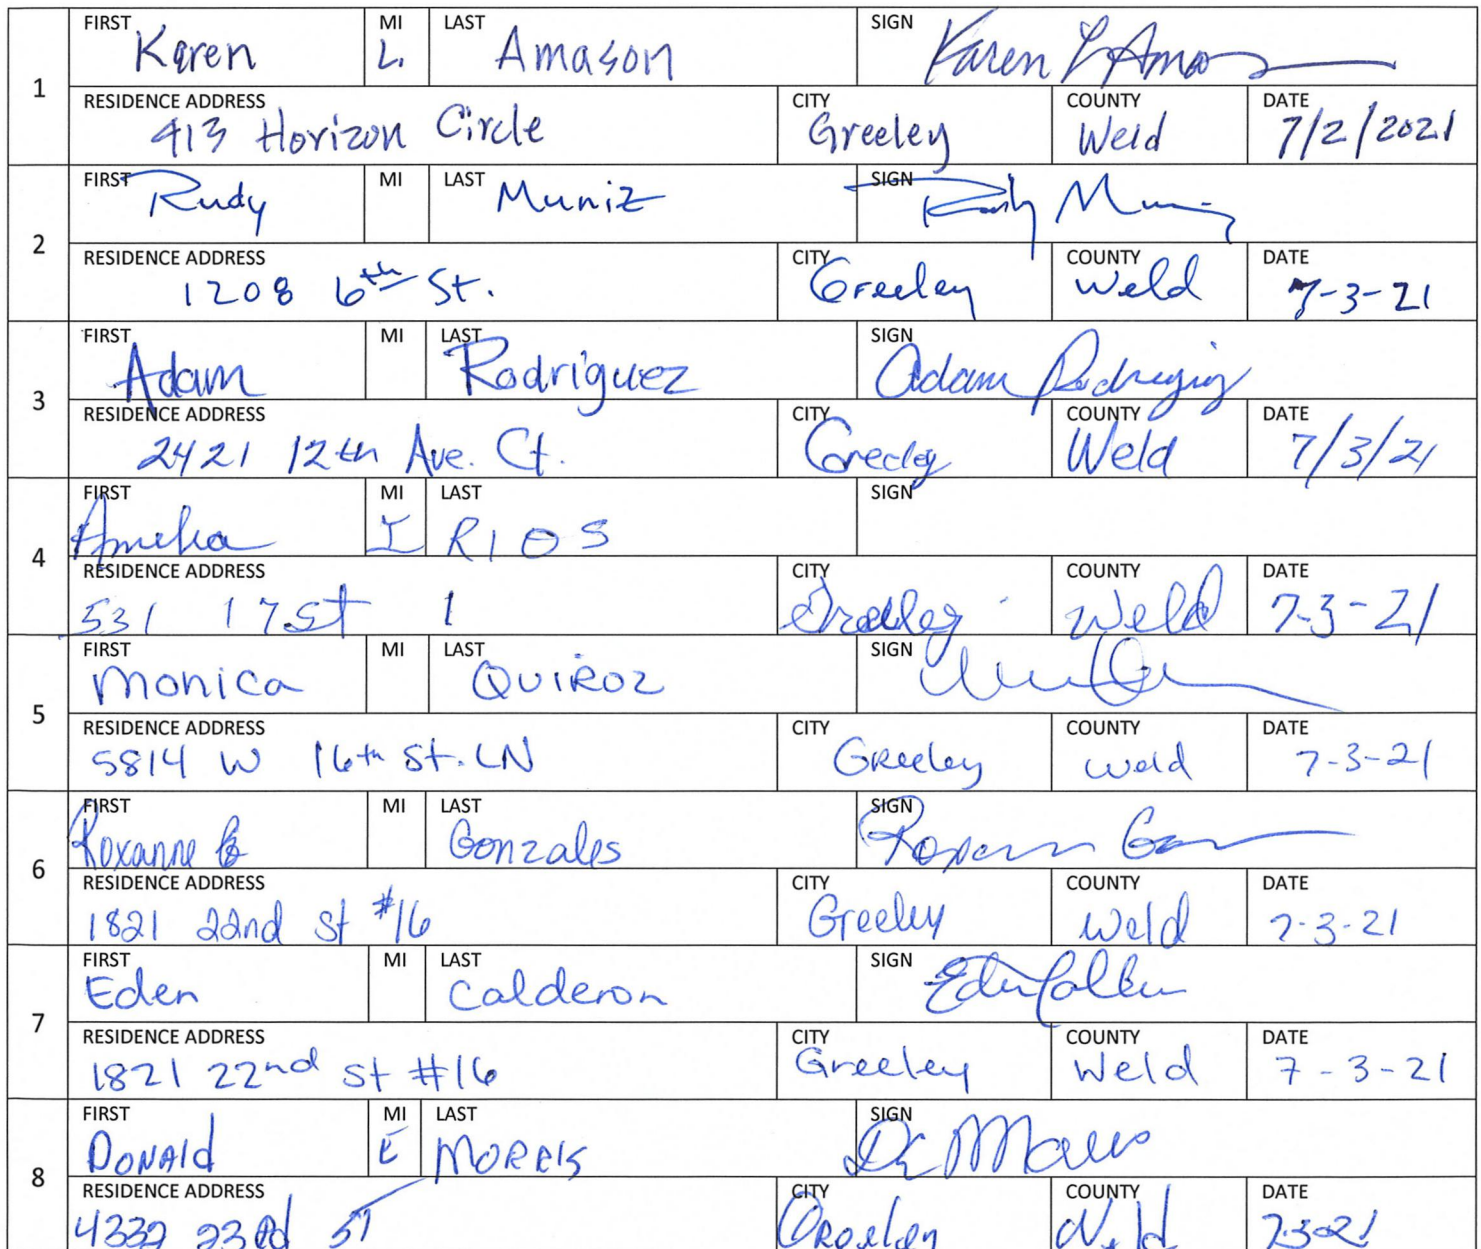 FIRST Karen MI L. LAST Amason SIGN Karen L Amason
1
RESIDENCE ADDRESS 413 Horizon Circle CITY Greeley COUNTY Weld DATE 7/2/2021
FIRST Rudy MI LAST Muniz SIGN Rudy Muniz
2
RESIDENCE ADDRESS 1208 6th St. CITY Greeley COUNTY Weld DATE 7-3-21
FIRST Adam MI LAST Rodriguez SIGN Adam Rodriguez
3
RESIDENCE ADDRESS 2421 12th Ave. Ct. CITY Greeley COUNTY Weld DATE 7/3/21
FIRST Amelia MI I LAST RIOS SIGN
4
RESIDENCE ADDRESS 531 17 St 1 CITY Greeley COUNTY Weld DATE 7-3-21
FIRST Monica MI LAST QUIROZ SIGN
5
RESIDENCE ADDRESS 5814 W 16th St. LN CITY Greeley COUNTY Weld DATE 7-3-21
FIRST Roxanne MI LAST Gonzales SIGN
6
RESIDENCE ADDRESS 1821 22nd St #16 CITY Greeley COUNTY Weld DATE 7-3-21
FIRST Eden MI LAST Calderon SIGN
7
RESIDENCE ADDRESS 1821 22nd St #16 CITY Greeley COUNTY Weld DATE 7-3-21
FIRST DONALD MI E LAST MORRIS SIGN
8
RESIDENCE ADDRESS 4332 23Rd ST CITY Greeley COUNTY Weld DATE 7-3-21